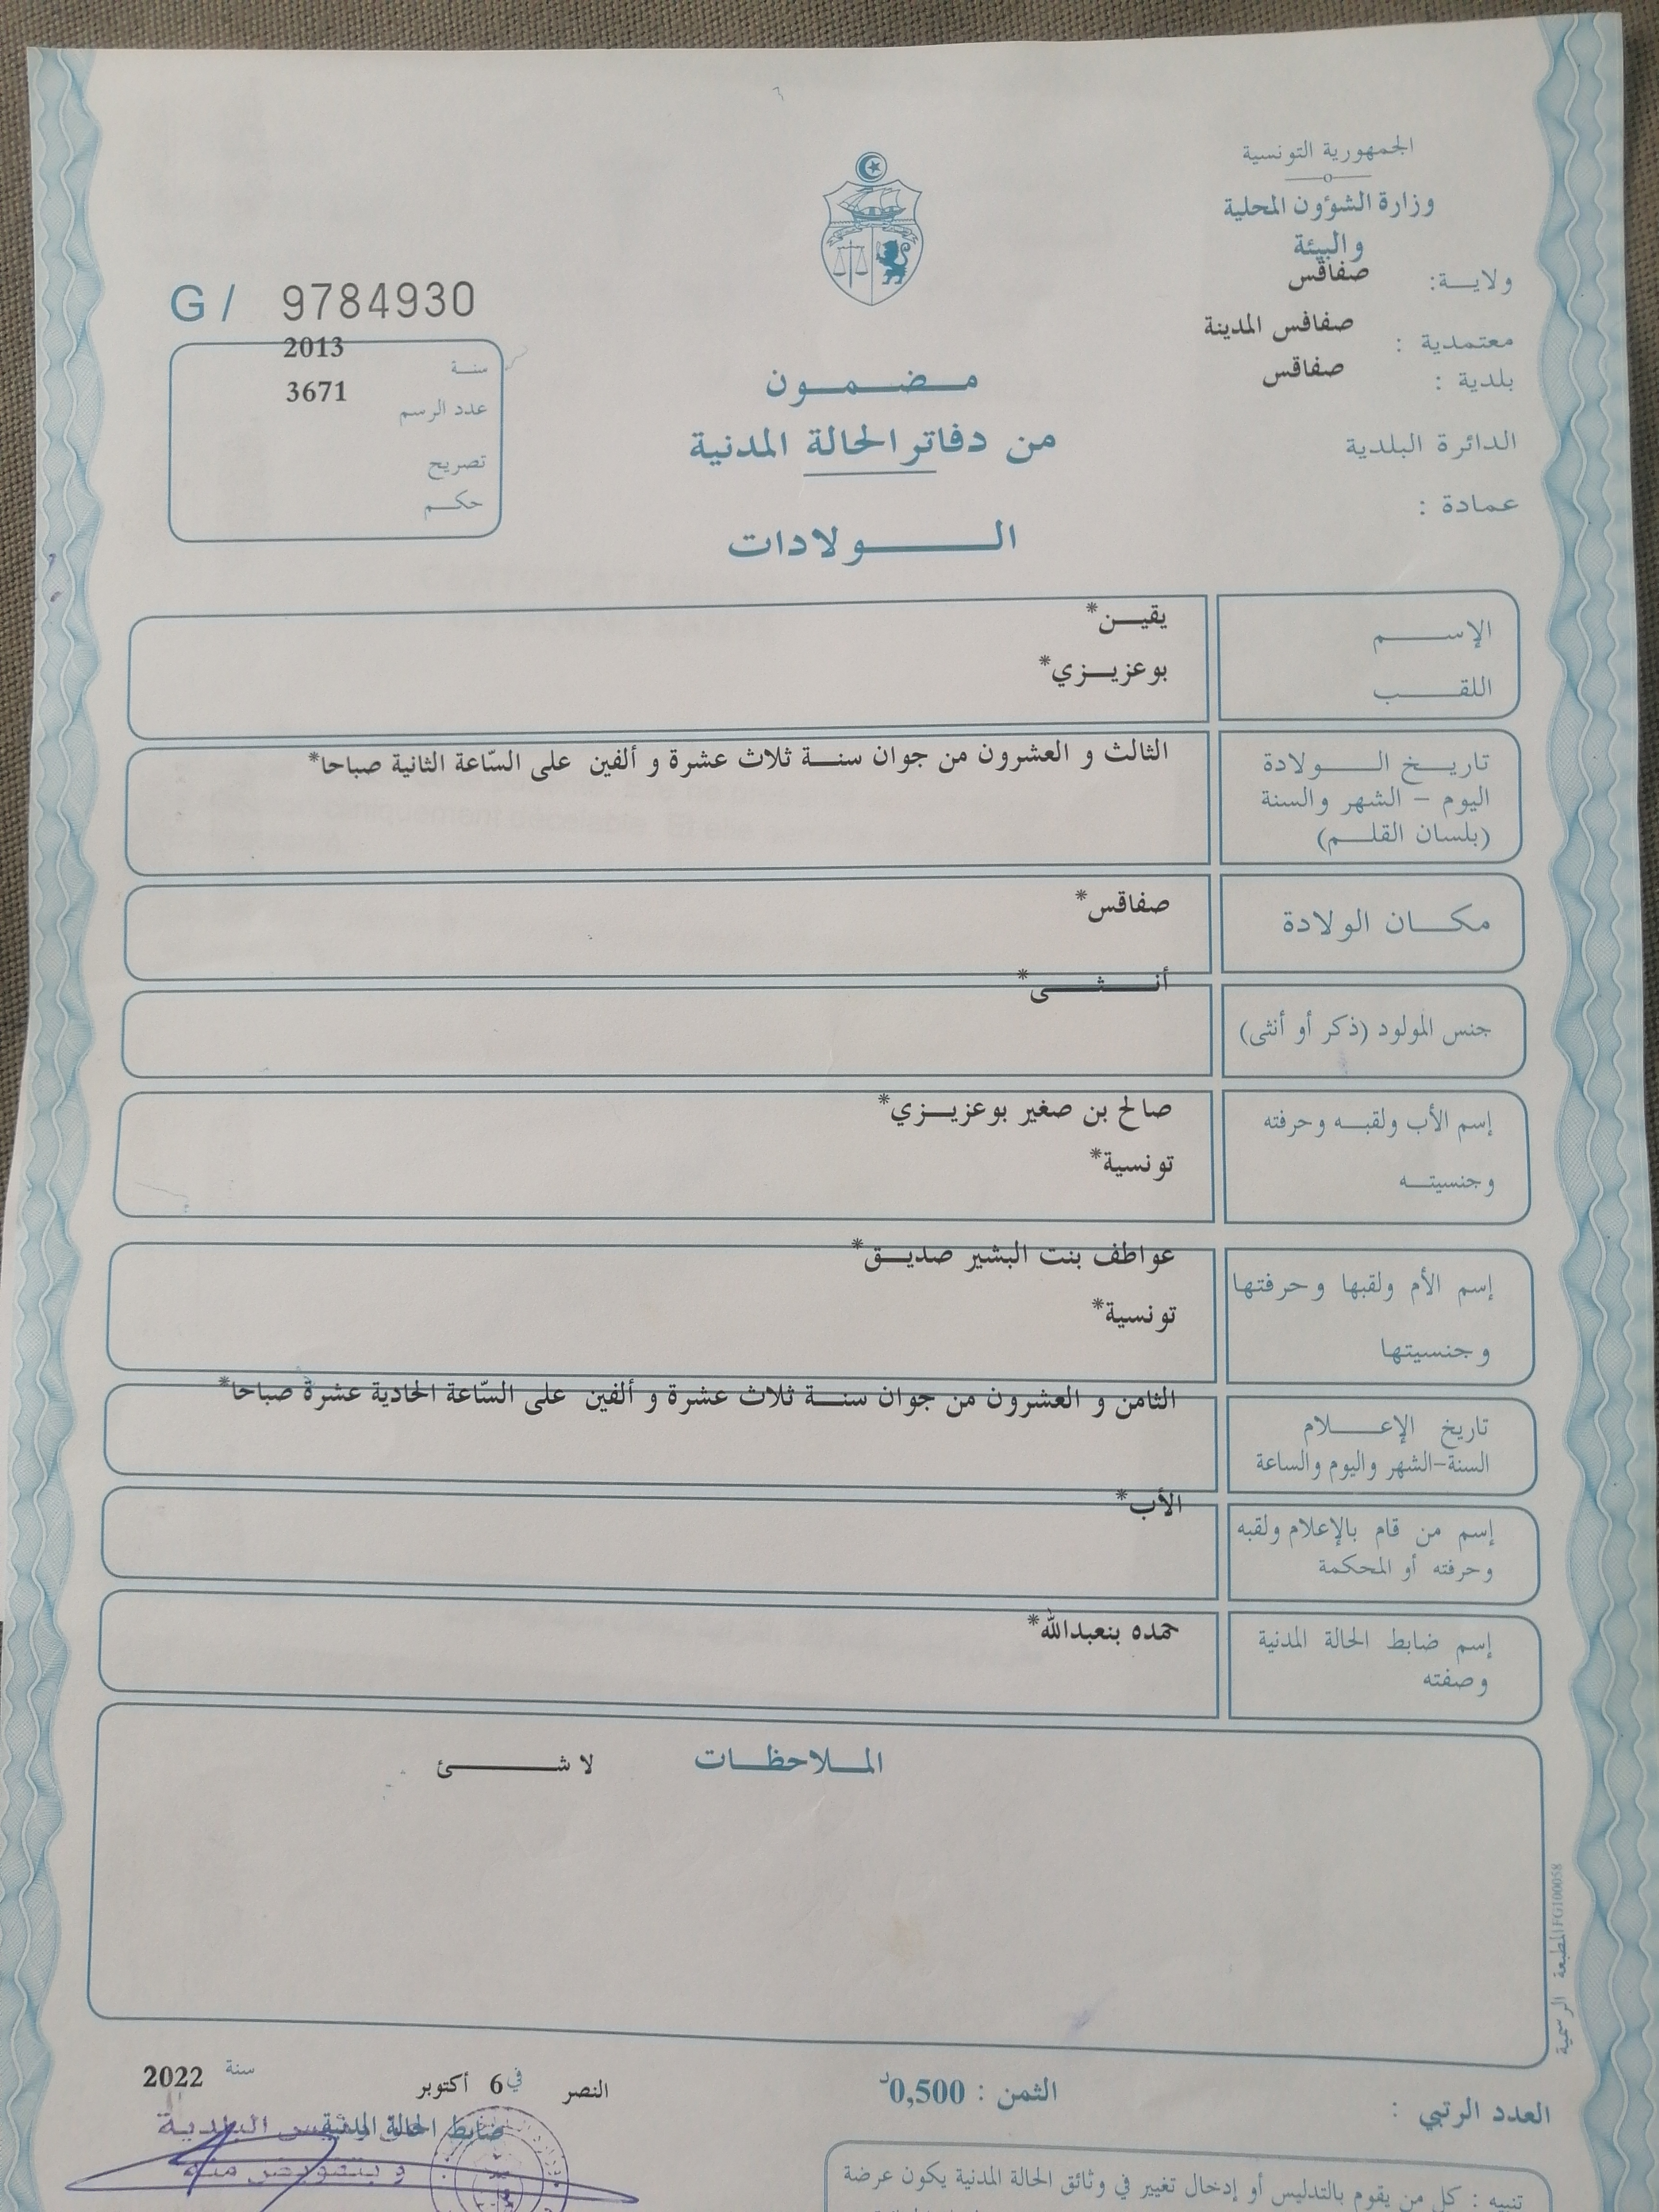 الجمهورية التونسية
وزارة الشؤون المحلية
والبيئة
ولاية: صفاقس
معتمدية : صفاقس المدينة
بلدية : صفاقس
الدائرة البلدية
عمادة :
G/ 9784930
سنة 2013
عدد الرسم 3671
تصريح
حكم
مضمون
من دفاتر الحالة المدنية
الولادات
الإسم يقين*
اللقب بوعزيزي*
تاريخ الولادة الثالث و العشرون من جوان سنة ثلاث عشرة و ألفين على السّاعة الثانية صباحا*
اليوم – الشهر والسنة
(بلسان القلم)
مكان الولادة صفاقس*
جنس المولود (ذكر أو أنثى) أنثى*
إسم الأب ولقبه وحرفته صالح بن صغير بوعزيزي*
وجنسيته تونسية*
إسم الأم ولقبها وحرفتها عواطف بنت البشير صديق*
وجنسيتها تونسية*
تاريخ الإعلام الثامن و العشرون من جوان سنة ثلاث عشرة و ألفين على السّاعة الحادية عشرة صباحا*
السنة-الشهر واليوم والساعة
إسم من قام بالإعلام ولقبه الأب*
وحرفته أو المحكمة
إسم ضابط الحالة المدنية حمده بنعبدالله*
وصفته
الملاحظات لا شئ
المطبعة الرسمية FG100058
النصر في 6 أكتوبر سنة 2022
ضابط الحالة المدنية
البلدية
وبتفويض منه
العدد الرتبي :
الثمن : 0,500د
تنبيه : كل من يقوم بالتدليس أو إدخال تغيير في وثائق الحالة المدنية يكون عرضة